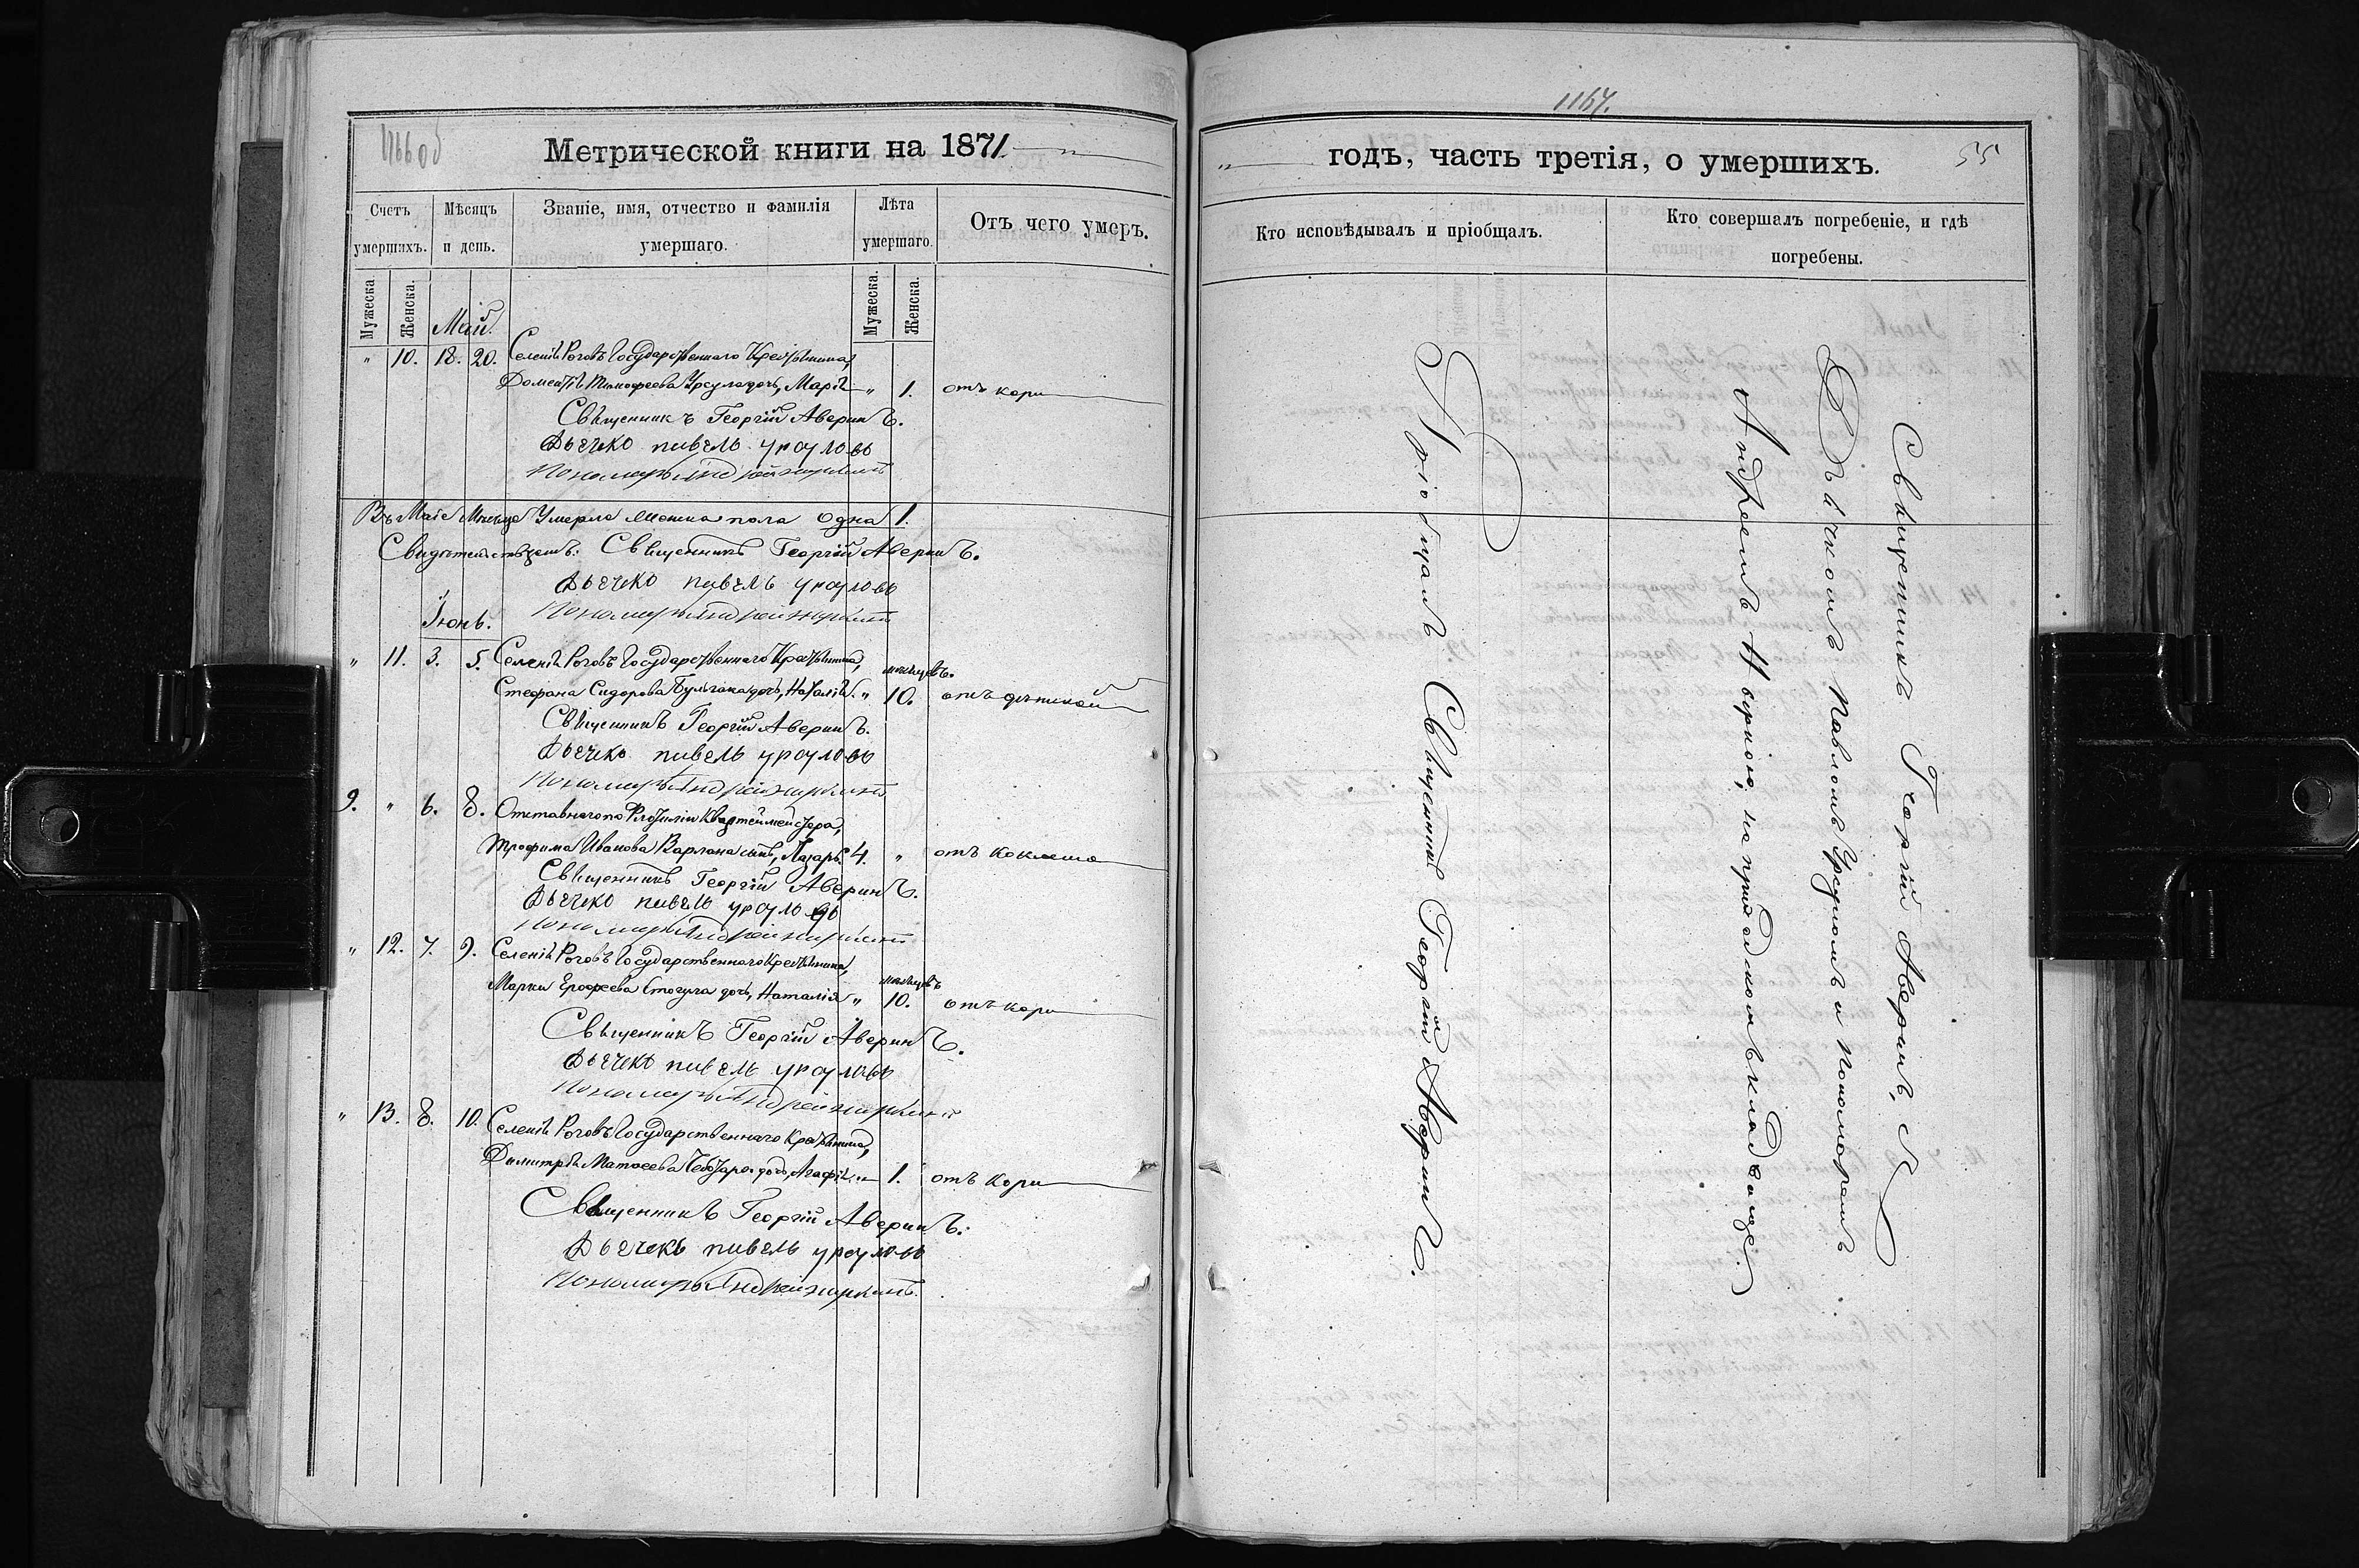 1166об
Метрической книги на 1871.
Счетъ умершихъ.
Мѣсяцъ и день.
Званіе, имя, отчество и фамилія умершаго.
Лѣта умершаго.
Отъ чего умеръ.
Мужеска. Женска.
Мужеска. Женска.
Май.
" 10. 18. 20. Селенія Роговъ Государственнаго Крестьянина,
Доментія Тимофеева Урсула дочь, Марія " 1. отъ кори
Священникъ Георгій Аверинъ.
Дьячекъ Павелъ Урсуловъ
Пономарь Андрей
Въ Маіѣ Мѣсяцѣ Умерло Женска пола одна 1.
Священникъ Георгій Аверинъ.
Дьячекъ Павелъ Урсуловъ
Пономарь Андрей
Іюнь.
" 11. 3. 5. Селенія Роговъ Государственнаго Крестьянина, мѣсяцевъ.
Стефана Сидорова дочь, Наталія. " 10. отъ дѣтской
Священникъ Георгій Аверинъ.
Дьячекъ Павелъ Урсуловъ
Пономарь Андрей
9. " 6. 8. Отставнаго по Флотиліи Квартеймейстора,
Трофима Иванова Варлана сынъ, Лазарь. 4. " отъ коклюша
Священникъ Георгій Аверинъ.
Дьячекъ Павелъ Урсуловъ
Пономарь Андрей
" 12. 7. 9. Селенія Роговъ Государственнаго Крестьянина, мѣсяцевъ
Марки Ерофеева дочь, Наталія " 10. отъ кори
Священникъ Георгій Аверинъ.
Дьячекъ Павелъ Урсуловъ
Пономарь Андрей
" 13. 8. 10. Селенія Роговъ Государственнаго Крестьянина,
Димитрія Матѳеева Чеботаря дочь, Агафія " 1. отъ кори
Священникъ Георгій Аверинъ.
Дьячекъ Павелъ Урсуловъ
Пономарь Андрей
1167.
годъ, часть третія, о умершихъ.
55
Кто исповѣдывалъ и пріобщалъ.
Кто совершалъ погребеніе, и гдѣ погребены.
Пріобщалъ Священникъ Георгій Аверинъ.
Священникъ Георгій Аверинъ, съ
Дьячкомъ Павломъ Урсуломъ и Пономаремъ
Андреемъ на приходскомъ кладбищѣ.